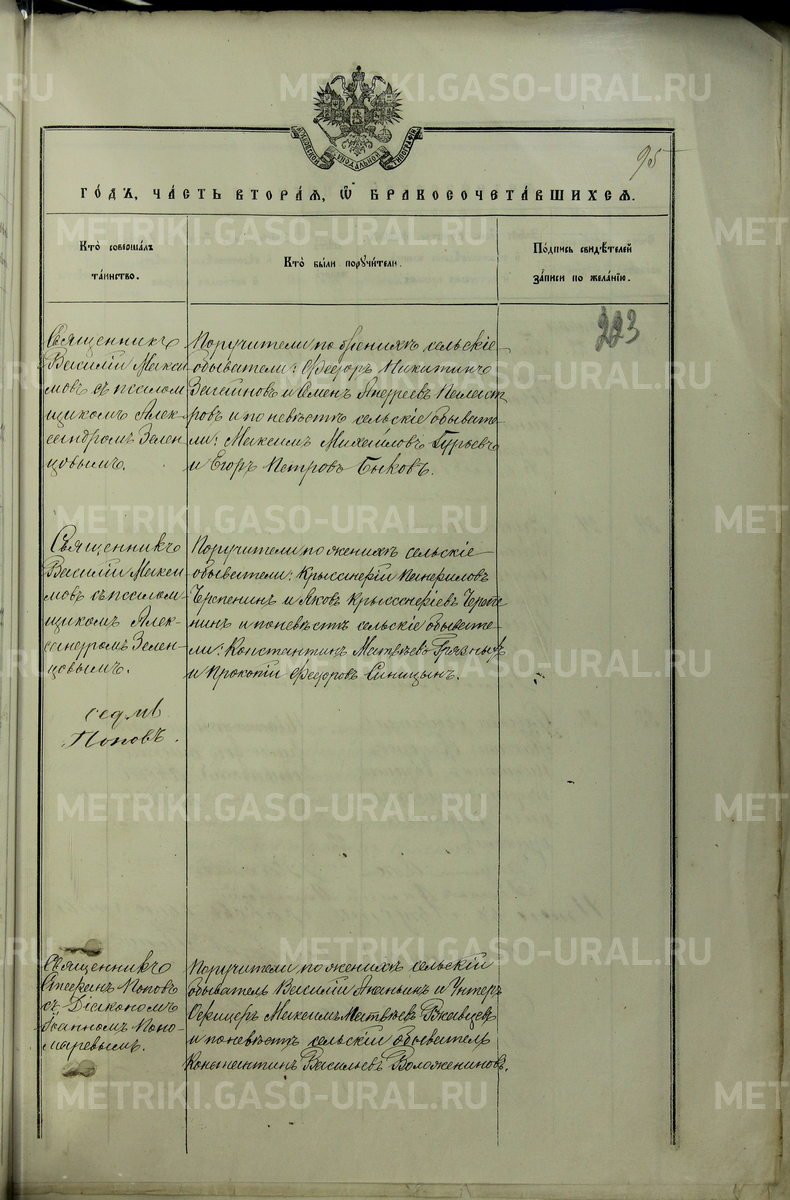 МОСКОВСКОЙ СѴНОДАЛЬНОЙ ТИПОГРАФІИ
95
ГОДЪ, ЧАСТЬ ВТОРАЯ, Ѡ БРАКОСОЧЕТАВШИХСЯ.
Кто совершалъ
таинство.
Кто были поручители.
Подпись свидѣтелей
записи по желанію.
223
Священникъ
Василій Макси
мовъ съ псалом
щикомъ Алек-
сандромъ Зелен
цовымъ.
Поручители по женихѣ сельскіе
обыватели: Федоръ Никитинъ
и Семенъ Андреевъ
и по невѣстѣ сельскіе обывате
ли: Максимъ Михайловъ Гурьевъ
и Егоръ Петровъ Быковъ.
Священникъ
Василій Макси
мовъ съ псалом
щикомъ Алек-
сандромъ Зелен-
цовымъ.
Поручители по женихѣ сельскіе
обыватели: Панфиловъ
Черепенин и Яковъ Черепе
нинъ и по невѣстѣ сельскіе обывате-
ли: Константинъ Матвѣевъ Грязныхъ
и Прокопій Федоровъ Синицынъ.
Поповъ.
Священникъ
Стефанъ Поповъ
съ Діакономъ
Іоанномъ Поно
маревымъ.
Поручители по женихѣ сельскій
обыватель Василій Ананьинъ и Унтеръ
Офицеръ Максимъ Матвѣевъ Ржавцевъ
и по невѣстѣ сельскій обыватель
Константинъ Васильевъ Воложениновъ.
METRIKI.GASO-URAL.RU